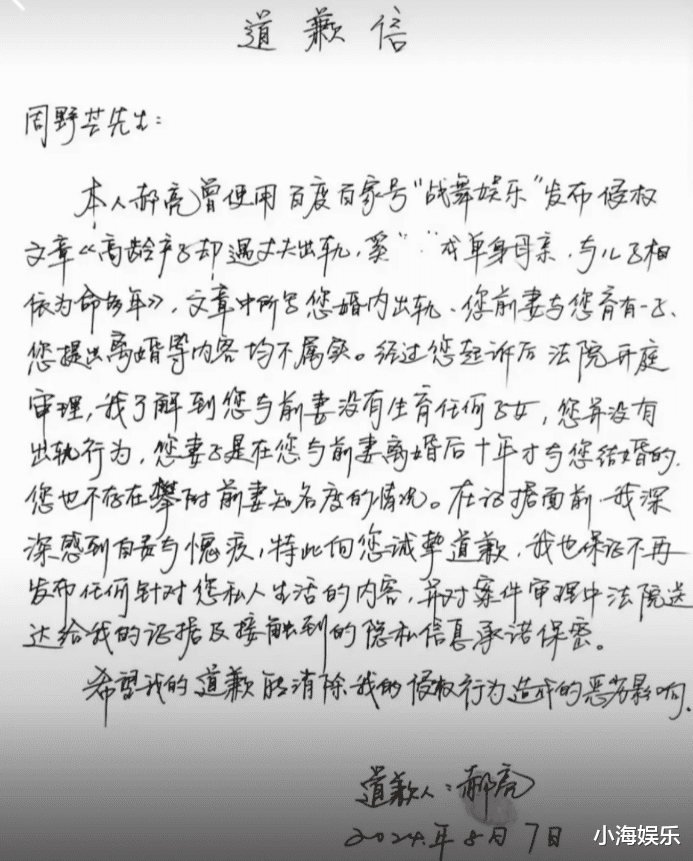 道歉信
周野芒先生：
本人郝亮曾使用百度百家号"战舞娱乐"发布侵权
文章《高龄产子却遇丈夫出轨，奚" "成单身母亲，与儿子相
依为命多年》，文章中所写您婚内出轨、您前妻与您育有一子、
您提出离婚等内容均不属实。经过您起诉后法院开庭
审理，我了解到您与前妻没有生育任何子女，您并没有
出轨行为，您妻子是在您与前妻离婚后十年才与您结婚的，
您也不存在攀附前妻知名度的情况。在证据面前，我深
深感到自责与愧疚，特此向您诚挚道歉，我也保证不再
发布任何针对您私人生活的内容，并对案件审理中法院送
达给我的证据及接触到的隐私信息承诺保密。
希望我的道歉能消除我的侵权行为造成的恶劣影响。
道歉人：郝亮
2024年8月7日
小海娱乐